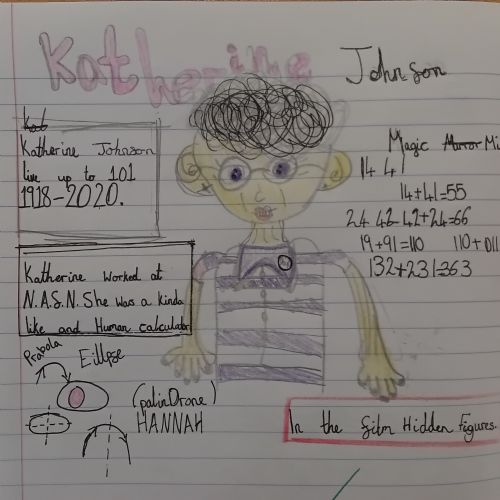 Katherine Johnson
Kat
Katherine Johnson
live up to 101
1918-2020.
Katherine worked at
N.A.S.N. She was a kinda
like and Human calculator
Prabola
Eillpse
(palinDrone)
HANNAH
Magic Mirror Mi
14 41
14+41=55
24 42 42+24=66
19+91=110 110+011
132+231=363
In the film Hidden Figures.